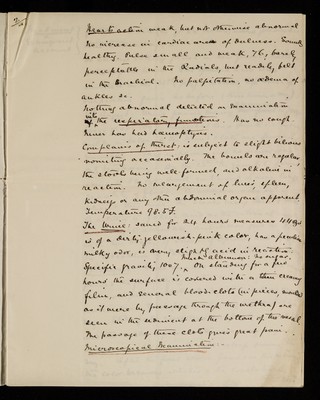 Heart's action weak, but not otherwise abnormal
No increase in cardiac area of dulness. Sounds
healthy. Pulse small and weak, 76, barely
perceptible in the Radials, but readily felt
in the Brachial. No palpitation, no œdema of
ankles &c.
Nothing abnormal detected on examination
of the respiratory functions. Has no cough
Never has had hæmoptysis.
Complains of thirst, is subject to slight bilious
vomiting occasionally. The bowels are regular,
the stools being well-formed, and alkaline in
reaction. No enlargement of liver, spleen,
kidneys or any other abdominal organ apparent
Temperature 98.5 F.
The Urine: saved for 24 hours measures
is of a dirty yellowish-pink color, has a peculiar
milky odor, is very slightly acid in reaction.
Specific gravity, 1007. Much albumen: no sugar.
On standing for a few
hours the surface is covered with a thin creamy
film, and several blood-clots (in pieces moulded
as it were by passage through the urethra) are
seen in the sediment at the bottom of the vessel
The passage of these clots gives great pain.
Microscopical Examination.